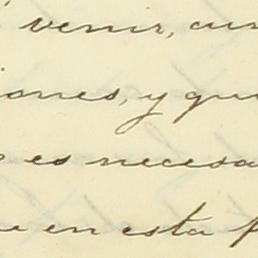 venir, aun
iones, y que
es necesa
e en esta f